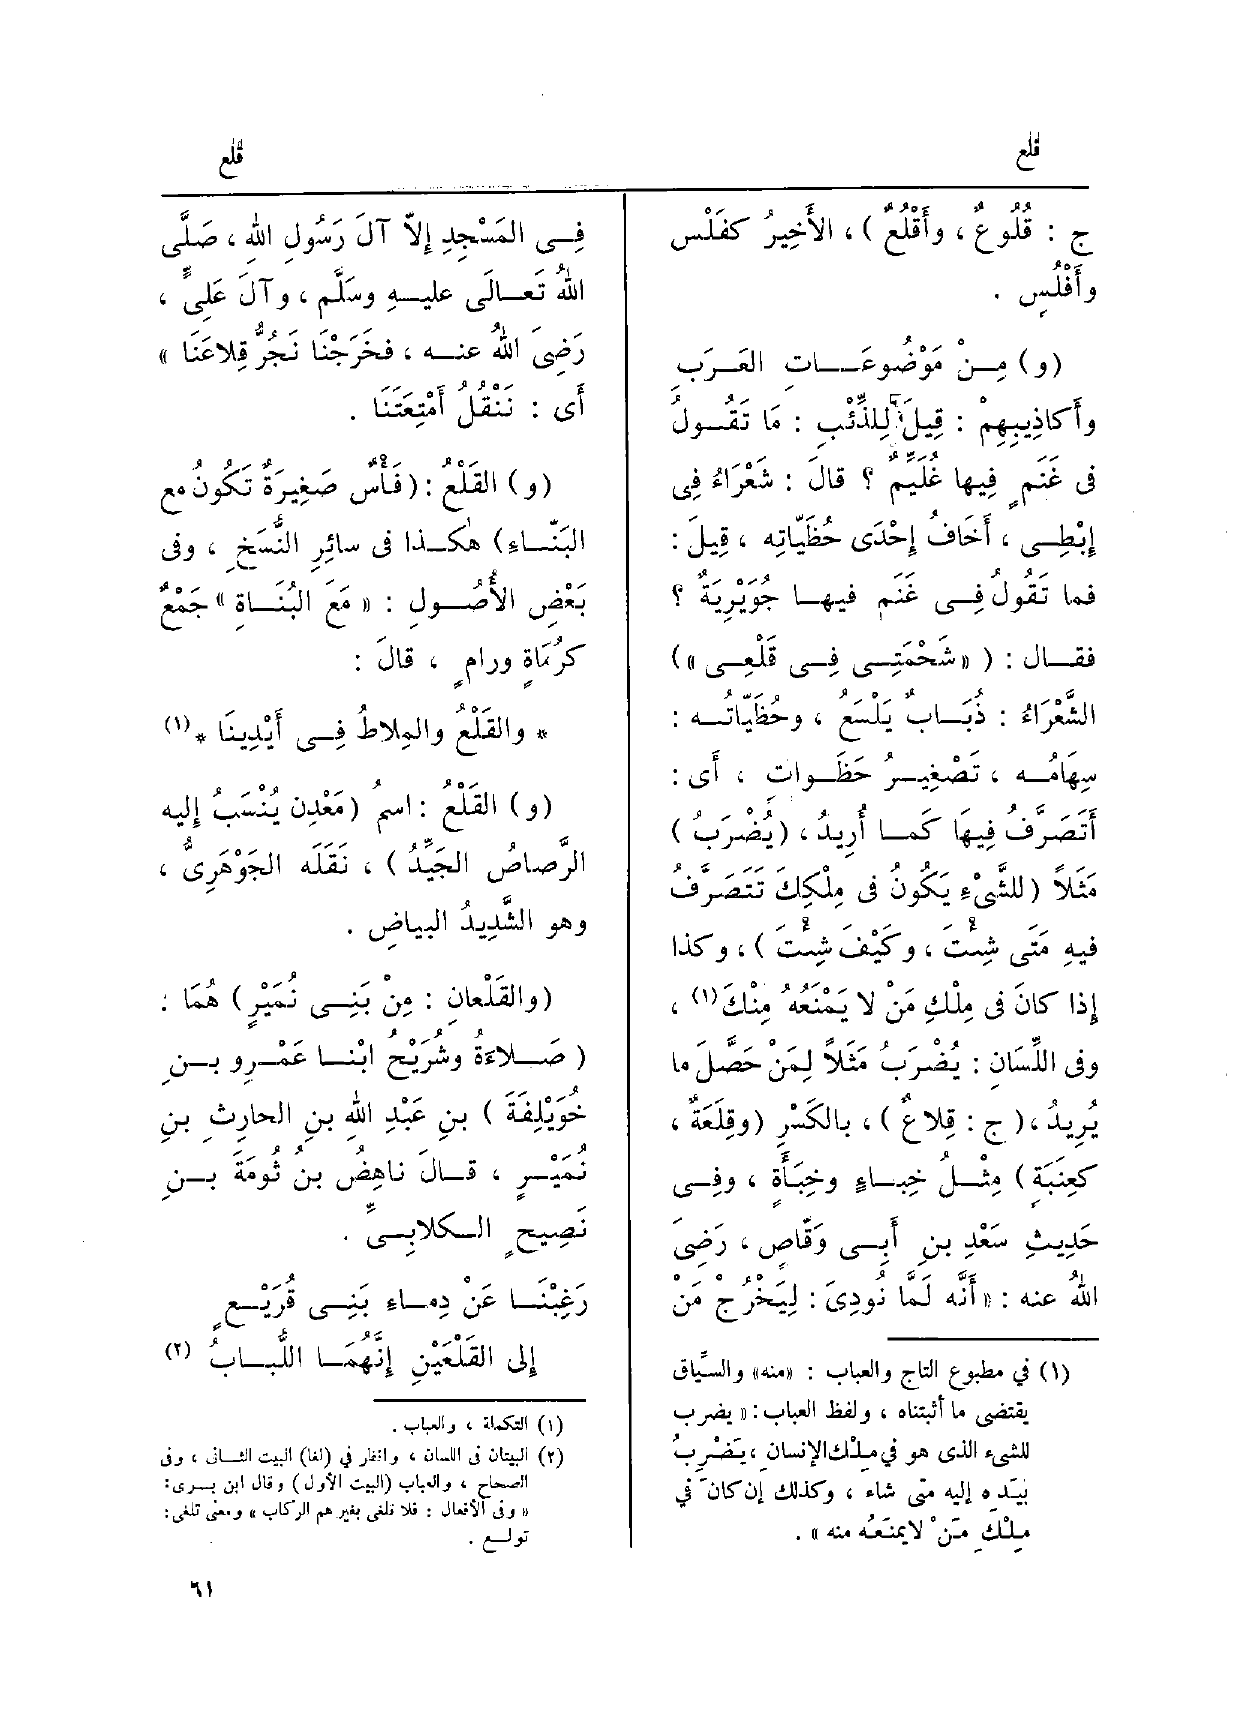 قلع
قلع
ج : قُلُوعٌ ، وأَقْلُعٌ ) ، الأَخِيرُ كفَلْسٍ
وأَفْلُسٍ .
(و) مِـنْ مَوْضُوعَـاتِ العَـرَبِ
وأَكاذِيبِهِمْ : قِيلَ لِلذِّئْبِ : مَا تَقُـولُ
فى غَنَمٍ فِيها غُلَيِّمٌ ؟ قالَ : شَعْرَاءُ فِى
إِبْطِـى ، أَخَافُ إِحْدَى حُظَيّاتِه ، قِيلَ :
فما تَقُولُ فِـى غَنَمٍ فيهـا جُوَيْرِيَةٌ ؟
فقـال : ( «شَحْمَتِـى فِـى قَلْعِـى »)
الشَّعْرَاءُ : ذُبَـابٌ يَلْسَعُ ، وحُظَيّاتُـه :
سِهَامُـه ، تَصْغِيـرُ حَظَـواتٍ ، أَى :
أَتَصَرَّفُ فِيهَا كَمـا أُرِيدُ ، (يُضْرَبُ )
مَثَلاً (للشَّىْءِ يَكُونُ فى مِلْكِكَ تَتَصَرَّفُ
فيهِ مَتَى شِئْتَ ، وكَيْفَ شِئْتَ ) ، وكذا
إِذا كانَ فى مِلْكِ مَنْ لا يَمْنَعُهُ مِنْكَ(١) ،
وفى اللِّسَانِ : يُضْرَبُ مَثَلاً لِمَنْ حَصَّلَ ما
يُرِيدُ ، ( ج : قِلاعٌ ) ، بالكَسْرِ (وقِلَعَةٌ ،
كعِنَبَةٍ ) مِثْـلُ خِبـاءٍ وخِبَأَةٍ ، وفِـى
حَدِيثِ سَعْدِ بنِ أَبِـى وَقّاصٍ ، رَضِىَ
اللهُ عنه : «أَنَّه لَمَّا نُودِىَ : لِيَخْرُجْ مَنْ
(١) في مطبوع التاج والعباب : «منه» والسِّياق
يقتضى ما أثبتناه ، ولفظ العباب : « يضرب
للشىء الذى هو في مِلْك الإنسان ، يَضْرِبُ
بيَدِه إليه متى شاء ، وكذلك إن كان في
مِلْكِ مَنْ لايمنَعُه منه » .
فِـى المَسْجِدِ إِلاّ آلَ رَسُولِ اللهِ ، صَلَّى
اللهُ تَعـالَى عليـهِ وسَلَّم ، وآلَ عَلِىٍّ ،
رَضِىَ اللهُ عنـه ، فخَرَجْنَا نَجُرُّ قِلاعَنَا »
أَى : نَنْقُلُ أَمْتِعَتَنَا .
(و) القَلْعُ : (فَأْسٌ صَغِيرَةٌ تَكُونُ مع
البَنّـاءِ) هٰكـذا فى سائِرِ النُّسَخِ ، وفى
بَعْضِ الأُصُـولِ : « مَعَ البُنَـاةِ » جَمْعُ
كرُمَاةٍ ورامٍ ، قالَ :
* والقَلْعُ والمِلاطُ فِـى أَيْدِينَا *(١)
(و) القَلْعُ : اسم (مَعْدِنٍ يُنْسَبُ إِليه
الرَّصاصُ الجَيِّدُ ) ، نَقَلَه الجَوْهَرِىُّ ،
وهو الشَّدِيدُ البياضِ .
(والقَلْعانِ : مِنْ بَنِـى نُمَيْرٍ ) هُمَا :
( صَـلاءَةُ وشُرَيْحُ ابْنـا عَمْـرِو بـنِ
خُوَيْلِفَةَ ) بنِ عَبْدِ اللهِ بنِ الحارِثِ بنِ
نُمَيْـرٍ ، قـالَ ناهِضُ بنُ ثُومَةَ بـنِ
نَصِيحٍ الـكلابِـىُّ .
رَغِبْنَـا عَنْ دِمـاءِ بَنِـى قُرَيْـعٍ
إِلى القَلْعَيْنِ إِنَّهُمَـا اللُّبـابُ (٢)
(١) التكملة ، والعباب .
(٢) البيتان في اللسان ، وانظر في (لغا) البيت الثـانى ، وفى
الصحاح ، والعباب (البيت الأول ) وقال ابن بـرى :
« وفى الأفعال : فلا تلغى بغيرهم الركاب » ومعنى تلغى :
تولـع .
٦١